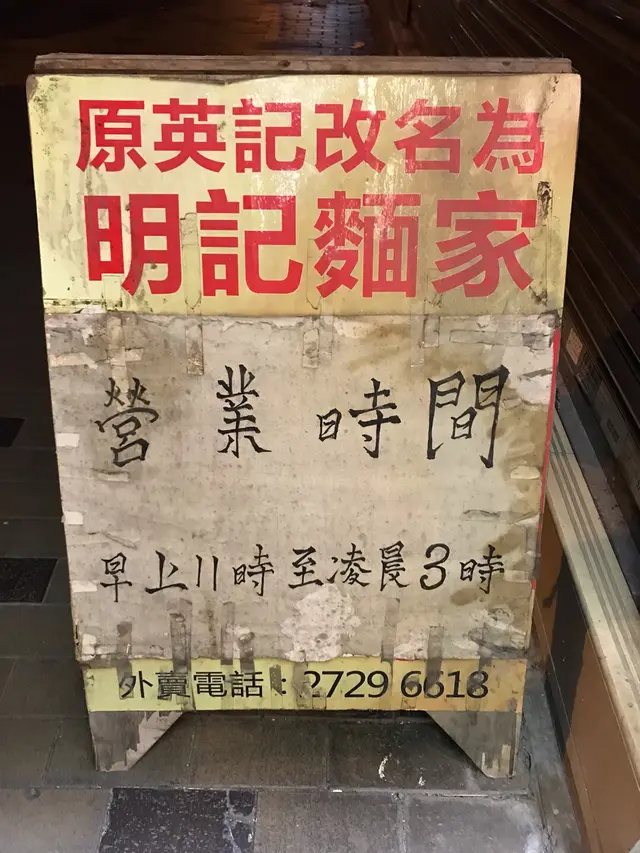 原英記改名為
明記麵家
營業時間
早上11時至凌晨3時
外賣電話：2729 6618